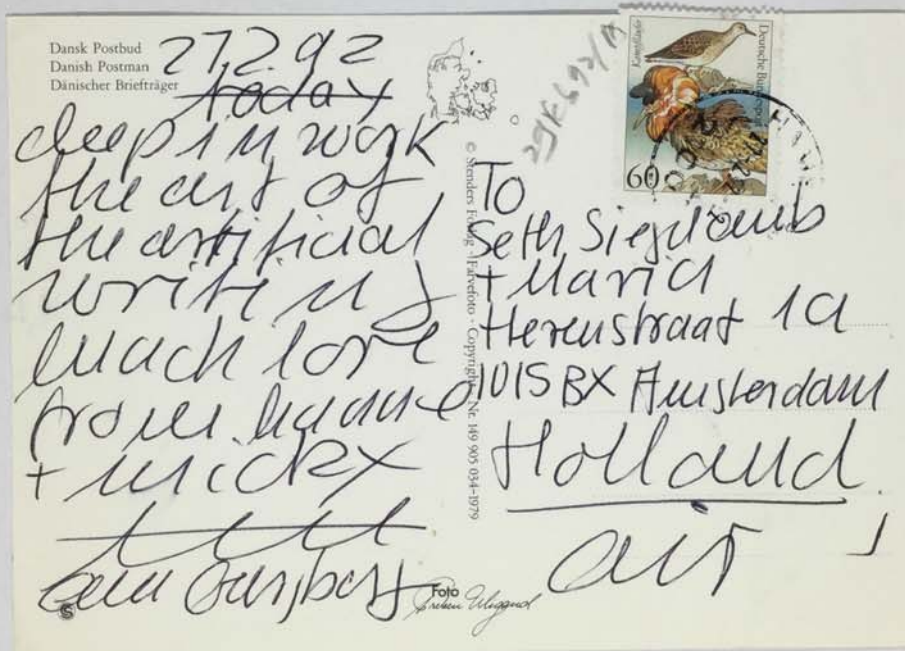 Dansk Postbud
Danish Postman
Dänischer Briefträger
27.2.92
today
deep in work
the art of
the artificial
writing
much love
from hanne
+ micky
© Stenders Forlag - Farvefoto - Copyright - Nr. 149 905 034-1979
Foto
Kampfläufer
Deutsche Bundespost
60
To
Seth Siegelaub
+ Maria
Herenstraat 1a
1015 BX Amsterdam
Holland
air